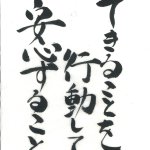 できることを
行動して
安心すること